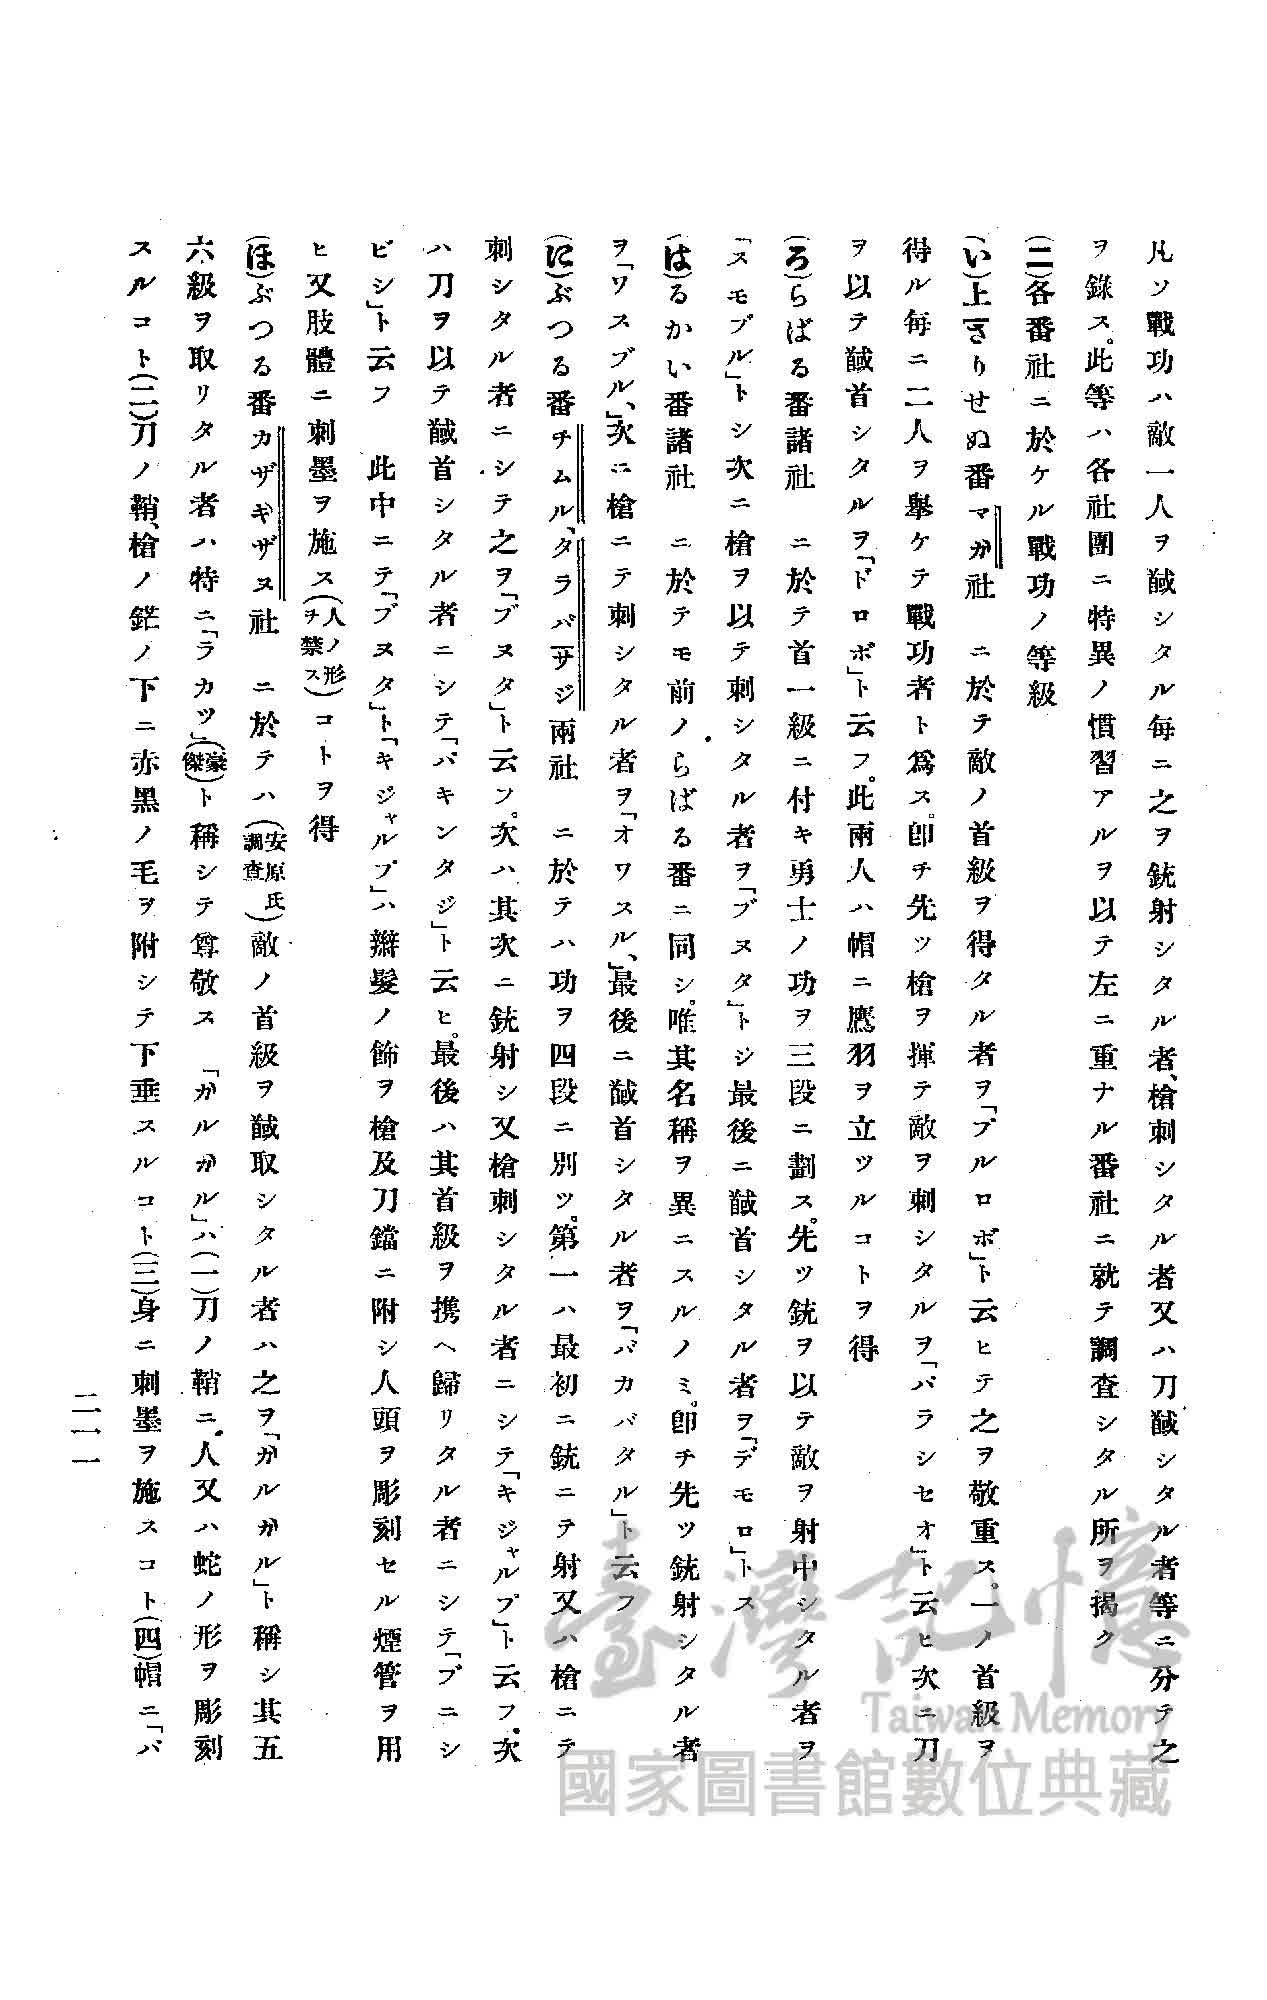 凡ソ戰功ハ敵一人ヲ馘シタル每ニ之ヲ銃射シタル者、槍刺シタル者又ハ刀馘シタル者等ニ分テ之
ヲ錄ス。此等ハ各社團ニ特異ノ慣習アルヲ以テ左ニ重ナル番社ニ就テ調査シタル所ヲ揭ク
(二)各番社ニ於ケル戰功ノ等級
(い)上ざりせぬ番マガ社　ニ於テ敵ノ首級ヲ得タル者ヲ「ブルロボ」ト云ヒテ之ヲ敬重ス。一ノ首級ヲ
得ル每ニ二人ヲ擧ケテ戰功者ト爲ス。卽チ先ツ槍ヲ揮テ敵ヲ刺シタルヲ「バラシセオ」ト云ヒ次ニ刀
ヲ以テ馘首シタルヲ「ドロボ」ト云フ。此兩人ハ帽ニ鷹羽ヲ立ツルコトヲ得
(ろ)らばる番諸社　ニ於テ首一級ニ付キ勇士ノ功ヲ三段ニ劃ス。先ツ銃ヲ以テ敵ヲ射中シタル者ヲ
「スモブル」トシ次ニ槍ヲ以テ刺シタル者ヲ「ブヌタ」トシ最後ニ馘首シタル者ヲ「デモロ」トス
(は)るかい番諸社　ニ於テモ前ノらばる番ニ同シ。唯其名稱ヲ異ニスルノミ。卽チ先ツ銃射シタル者
ヲ「ワスブル」、次ニ槍ニテ刺シタル者ヲ「オワスル」、最後ニ馘首シタル者ヲ「バカバタル」ト云フ
(に)ぶつる番チムル、タラバサジ兩社　ニ於テハ功ヲ四段ニ別ツ。第一ハ最初ニ銃ニテ射又ハ槍ニテ
刺シタル者ニシテ之ヲ「ブヌタ」ト云フ。次ハ其次ニ銃射シ又槍刺シタル者ニシテ「キジャルプ」ト云フ。次
ハ刀ヲ以テ馘首シタル者ニシテ「バキンタジ」ト云ヒ。最後ハ其首級ヲ携ヘ歸リタル者ニシテ「ブニシ
ビシ」ト云フ　此中ニテ「ブヌタ」ト「キジャルプ」ハ辮髮ノ飾ヲ槍及刀鐺ニ附シ人頭ヲ彫刻セル煙管ヲ用
ヒ又肢體ニ刺墨ヲ施ス(人ノ形チ禁ス)コトヲ得
(ほ)ぶつる番カザギザヌ社　ニ於テハ(安原氏調査)敵ノ首級ヲ馘取シタル者ハ之ヲ「ガルガル」ト稱シ其五
六級ヲ取リタル者ハ特ニ「ラカツ」(豪傑)ト稱シテ尊敬ス　「ガルガル」ハ(一)刀ノ鞘ニ人又ハ蛇ノ形ヲ彫刻
スルコト(二)刀ノ鞘、槍ノ鋩ノ下ニ赤黑ノ毛ヲ附シテ下垂スルコト(三)身ニ刺墨ヲ施スコト(四)帽ニ「バ
二一一
臺灣記憶
Taiwan Memory
國家圖書館數位典藏